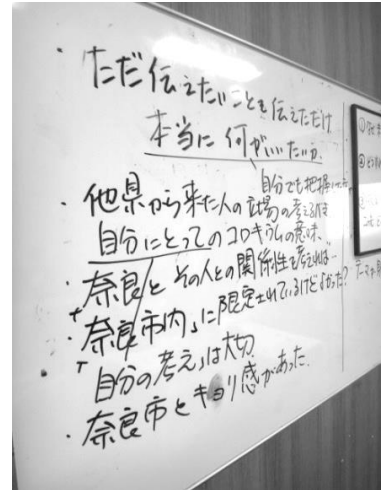 ・ただ伝えたいことを伝えただけ
本当に何がいいたいか
自分でも把握
・他県から来た人の立場の考え
自分にとってのコロキウムの意味
・奈良とその人との関係性を考えれば…
・「奈良市内」に限定されているけどよかった?
「自分の考え」は大切
・奈良市とキョリ感があった